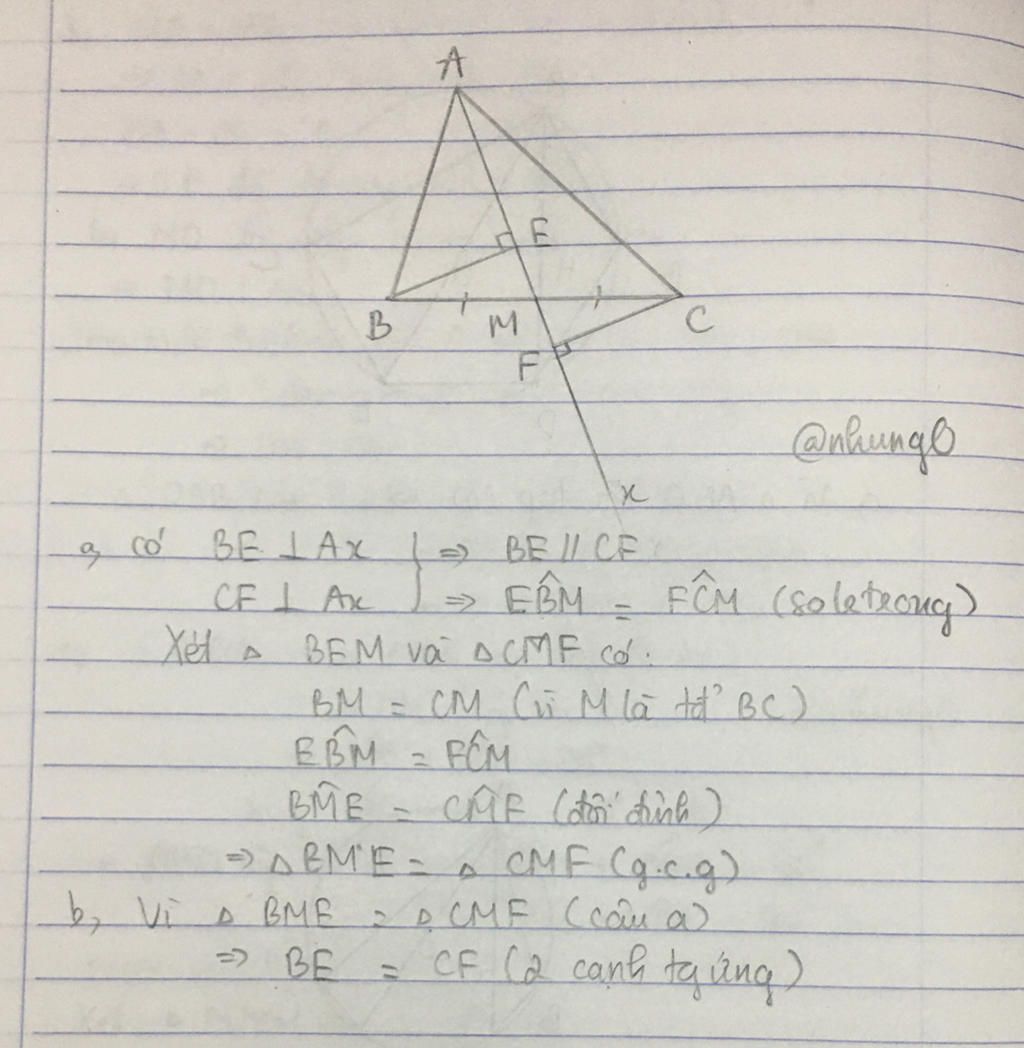 A
E
B
M
C
F
@nhungb
x
a, có BE ⊥ Ax } => BE // CF
CF ⊥ Ax } => EB̂M = FĈM (so le trong)
Xét △ BEM và △ CMF có:
BM = CM (vì M là tđ' BC)
EB̂M = FĈM
BM̂E = CM̂F (đối đỉnh)
=> △ BME = △ CMF (g.c.g)
b, Vì △ BME = △ CMF (câu a)
=> BE = CF (2 cạnh tg ứng)